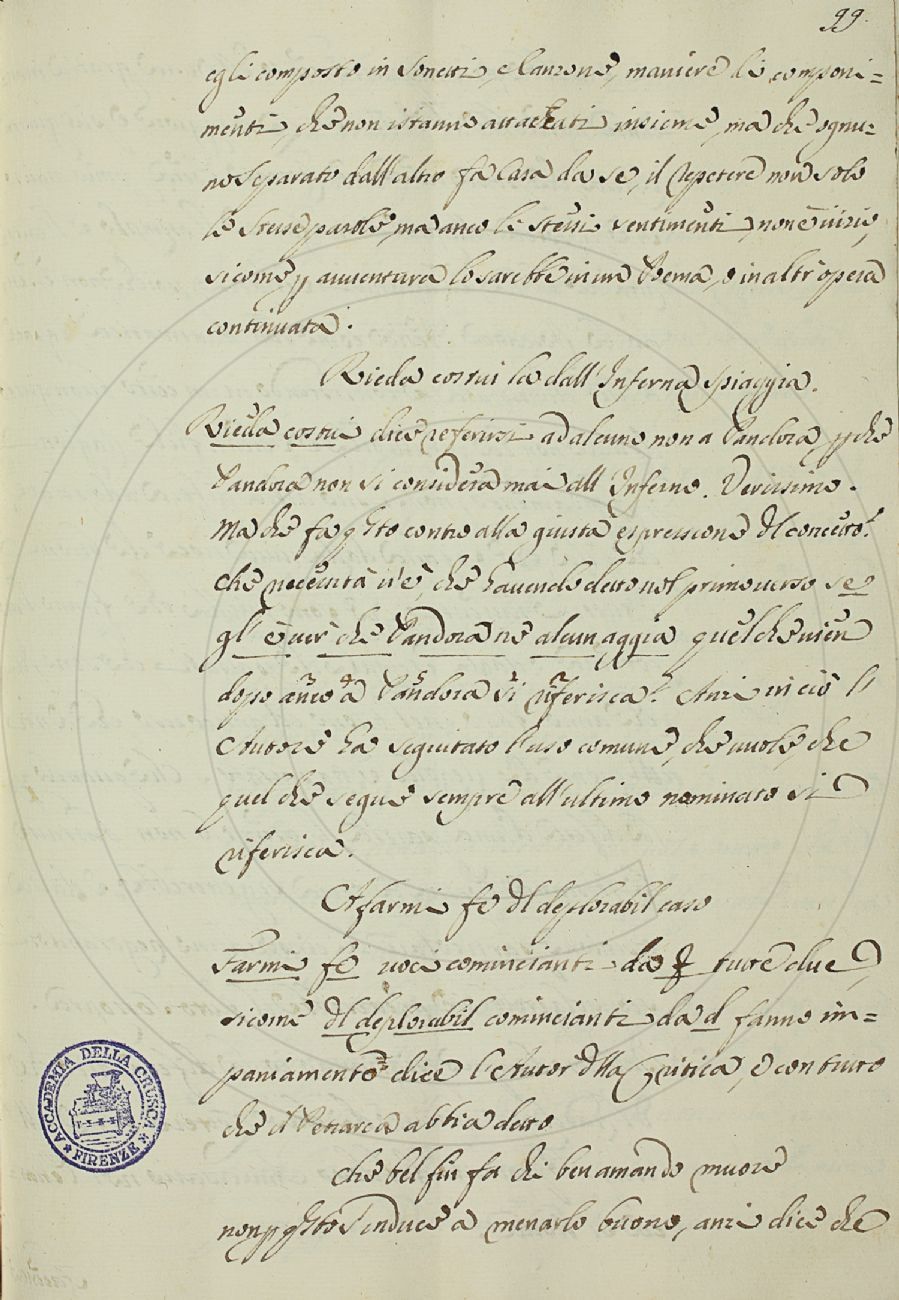 99.
egli composto in Sonetti, e Canzone, maniere di componi=
menti, che non istanno attaccati insieme, ma che ognu=
no Separato dall'altro fa Casa da se, il repetere non solo
le stesse parole, ma anco li stessi sentimenti, non è vizio,
sicome p avventura lo sarebbe in un Poema, o in altr'opera
continuata.
Rieda costui la dall'Inferna spiaggia.
Rieda costui dice referirsi ad alcuno non a Pandora, p che
Pandora non si considera mai all'Inferno. Verissimo.
Ma che fa qsto contro alla giusta espressione dl concetto?
Che necessità v'è, che havendo detto nel primo verso se
gl'è ver che Pandora ne alcun aggia quel che vien
dopo anco a Pandora si riferisca? Anzi in ciò l'
Autore ha seguitato l'uso comune, che vuole, che
quel che segue sempre all'ultimo nominato si
riferisca.
A farmi fe dl deplorabil caso
Farmi fe voci comincianti da f tutte due,
sicome dl deplorabil comincianti da d fanno im=
paniamento dice l'Autor dlla Critica, e con tutto
che il Petrarca abbia detto
Che bel fin fa chi ben amando muore
non p qsto s'induce a menarlo buono, anzi dice che
ACCADEMIA DELLA CRUSCA
FIRENZE